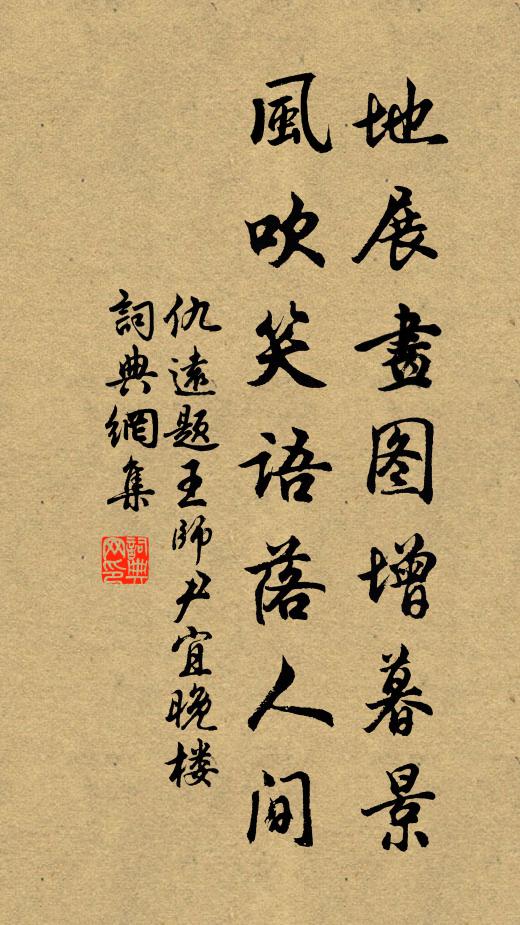 地展畫图增暮景
風吹笑语落人间
仇遠题王師尹宜晚楼
詞典網集
詞典網印